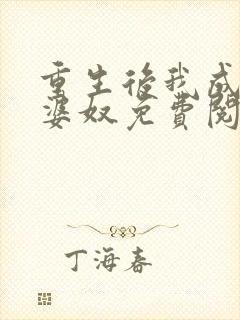 重生後我成
婆奴免費閱
丁海春